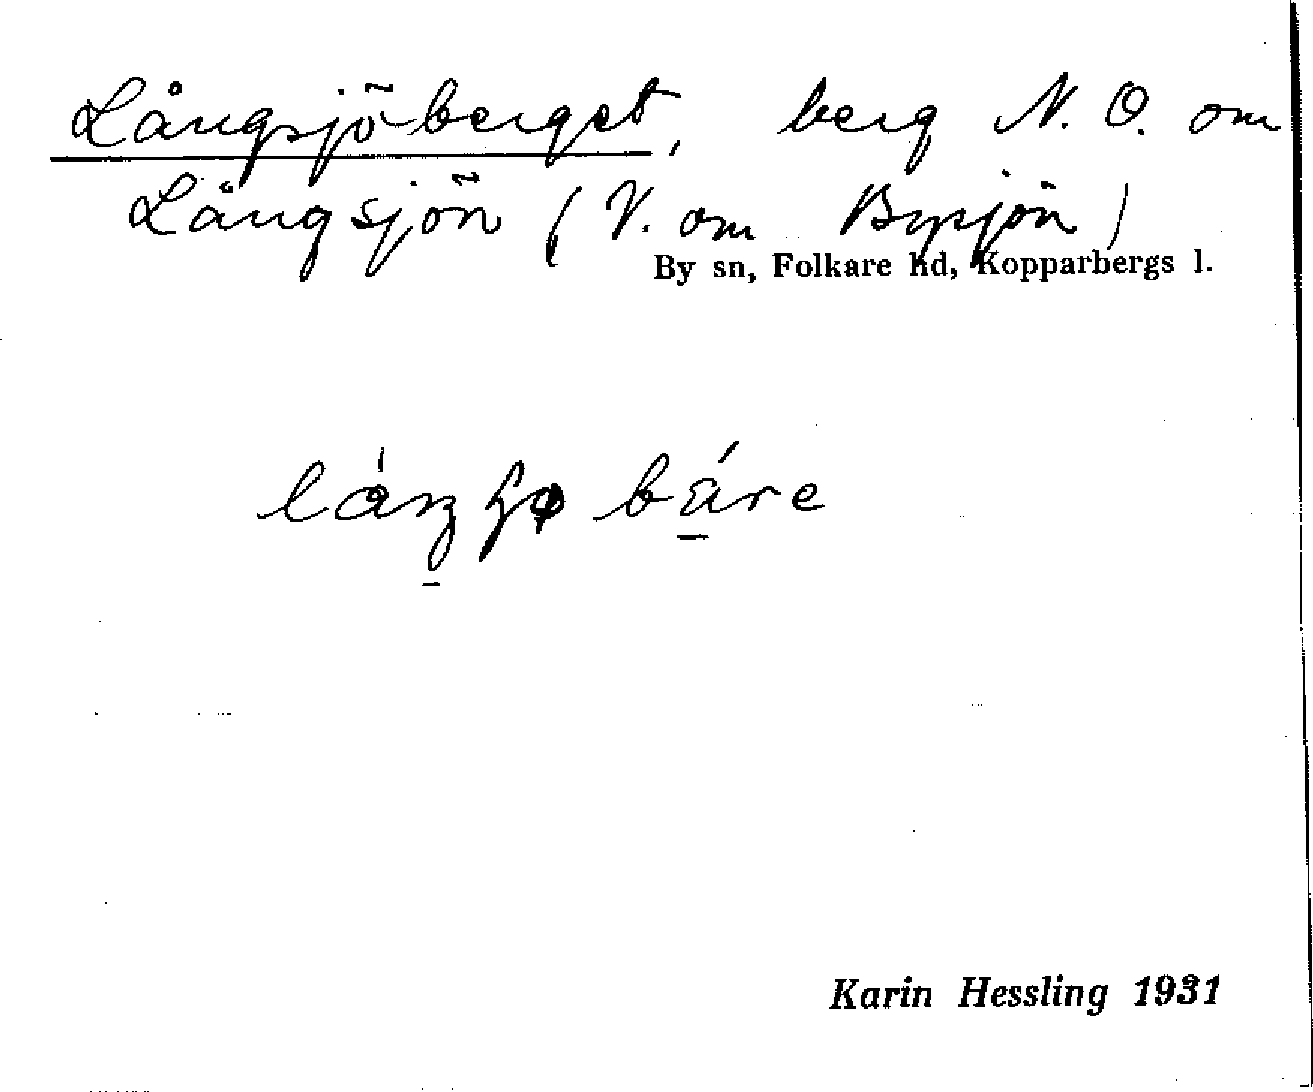 Långsjöberget, berg N. O. om
Långsjön (V. om Bysjön)
By sn, Folkare hd, Kopparbergs l.
Karin Hessling 1931